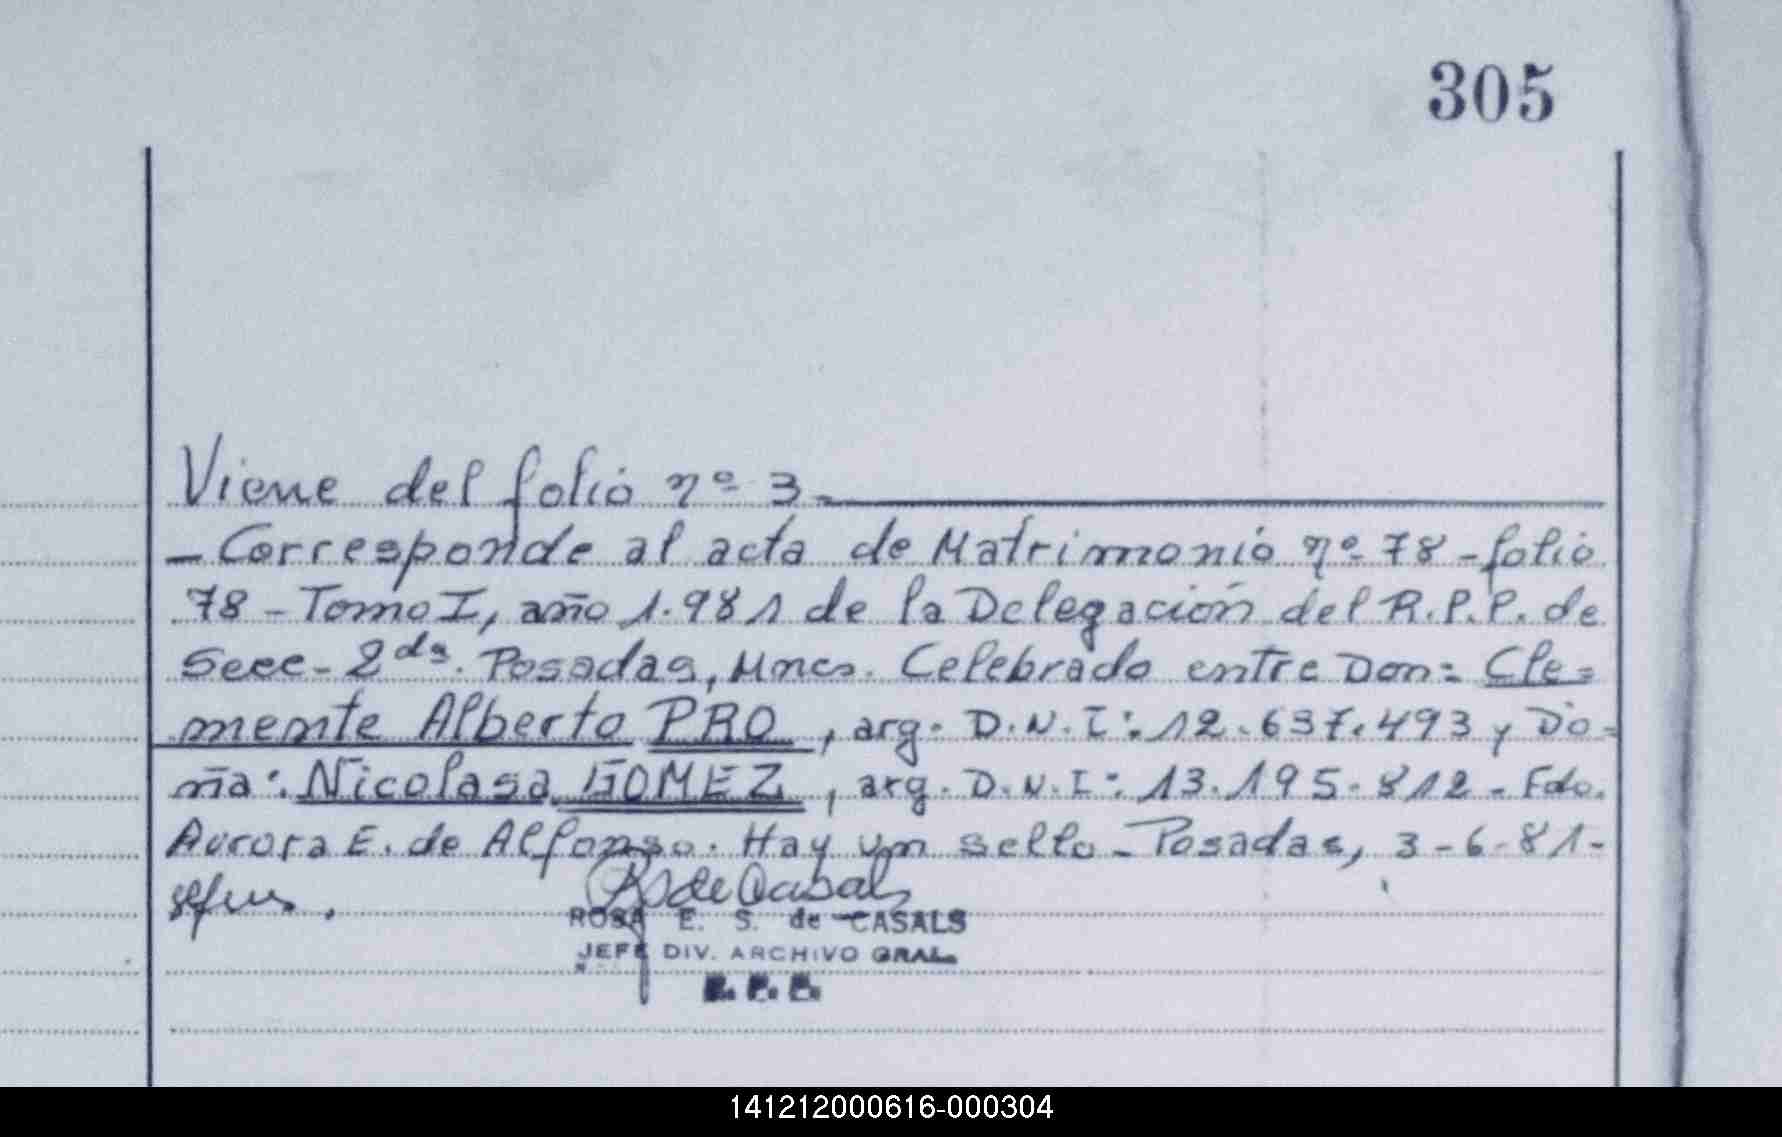 305
Viene del folio nº 3-
- Corresponde al acta de Matrimonio nº 78 - folio
78 - Tomo I, año 1.981 de la Delegación del R.P.P. de
Secc- 2da. Posadas, Mnes. Celebrado entre Don: Cle=
mente Alberto PRO, arg. D.N.I: 12.637.493 y Do=
ña: Nicolasa GOMEZ, arg. D.N.I: 13.195.812 - Fdo.
Aurora E. de Alfonso. Hay un sello - Posadas, 3-6-81-
RSdeCasals
ROSA E. S. de CASALS
JEFE DIV. ARCHIVO GRAL.
141212000616-000304